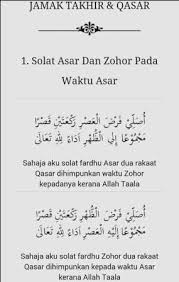 JAMAK TAKHIR & QASAR
1. Solat Asar Dan Zohor Pada
Waktu Asar
أُصَلِّيْ فَرْضَ الْعَصْرِ رَكْعَتَيْنِ قَصْرًا
مَجْمُوْعًا إِلَى الظُّهْرِ أَدَاءً لِلّٰهِ تَعَالَى
Sahaja aku solat fardhu Asar dua rakaat
Qasar dihimpunkan waktu Zohor
kepadanya kerana Allah Taala
أُصَلِّيْ فَرْضَ الظُّهْرِ رَكْعَتَيْنِ قَصْرًا
مَجْمُوْعًا إِلَيْهِ الْعَصْرِ أَدَاءً لِلّٰهِ تَعَالَى
Sahaja aku solat fardhu Zohor dua rakaat
Qasar dihimpunkan kepada waktu Asar
kerana Allah Taala